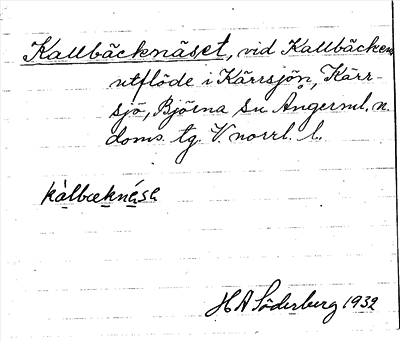 Kallbäcknäset, vid Kallbäckens
utflöde i Kärrsjön, Kärr-
sjö, Björna sn Ångerml. n.
doms. tg. V. norrl. l.
kàlbæknása
H A Söderberg 1932